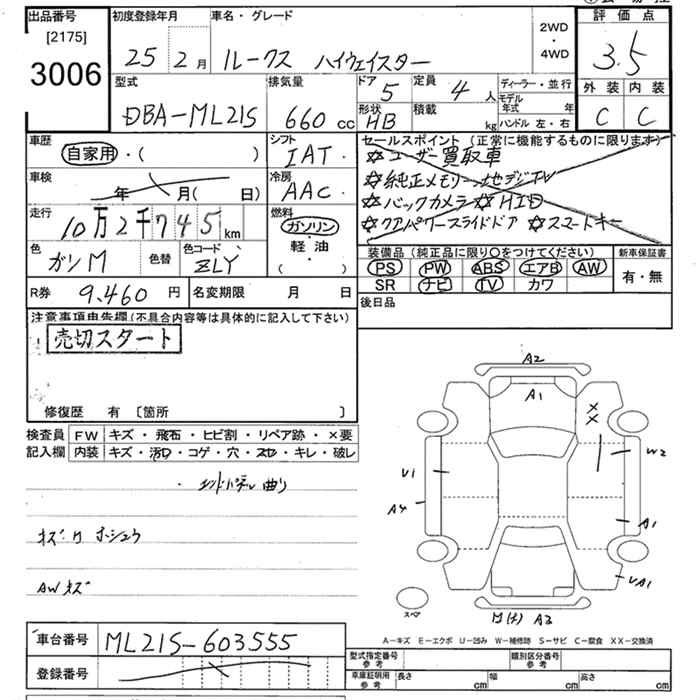 出品番号
[2175]
3006
初度登録年月
25 2月
車名・グレード
ルークス ハイウェイスター
2WD
・
4WD
評価点
3.5
外装 内装
C C
型式
DBA-ML21S
排気量
660 cc
ドア 5
定員 4人
形状 HB
積載 kg
ディーラー・並行
モデル年式 年
ハンドル 左・右
車歴
自家用・( )
シフト
IAT・
車検
年 月( 日)
冷房
AAC・
走行
10万2千745km
燃料
ガソリン
軽油
( )
色
ガンM
色替
色コード
ZLY
セールスポイント(正常に機能するものに限ります)
☆ユーザー買取車
☆純正メモリー地デジTV
☆バックカメラ☆HID
☆クアパワースライドドア ☆スマートキー
装備品(純正品に限り○をつけてください)
PS PW ABS エアB AW
SR ナビ TV カワ
新車保証書
有・無
R券 9.460円
名変期限 月 日
後日品
注意事項申告欄(不具合内容等は具体的に記入して下さい)
売切スタート
修復歴 有 〔箇所 〕
検査員 FW キズ・飛石・ヒビ割・リペア跡・×要
記入欄 内装 キズ・汚れ・コゲ・穴・スレ・キレ・破レ
・エンドパネル曲り
キズ凹 ホシュウ
AWキズ
A2
A1
××
W2
U1
A4
A1
UA1
スペア
A3
A-キズ E-エクボ U-凹み W-補修跡 S-サビ C-腐食 XX-交換済
車台番号 ML21S-603555
登録番号
型式指定番号
参考
類別区分番号
参考
車庫証明用
参考
長さ cm
幅 cm
高さ cm